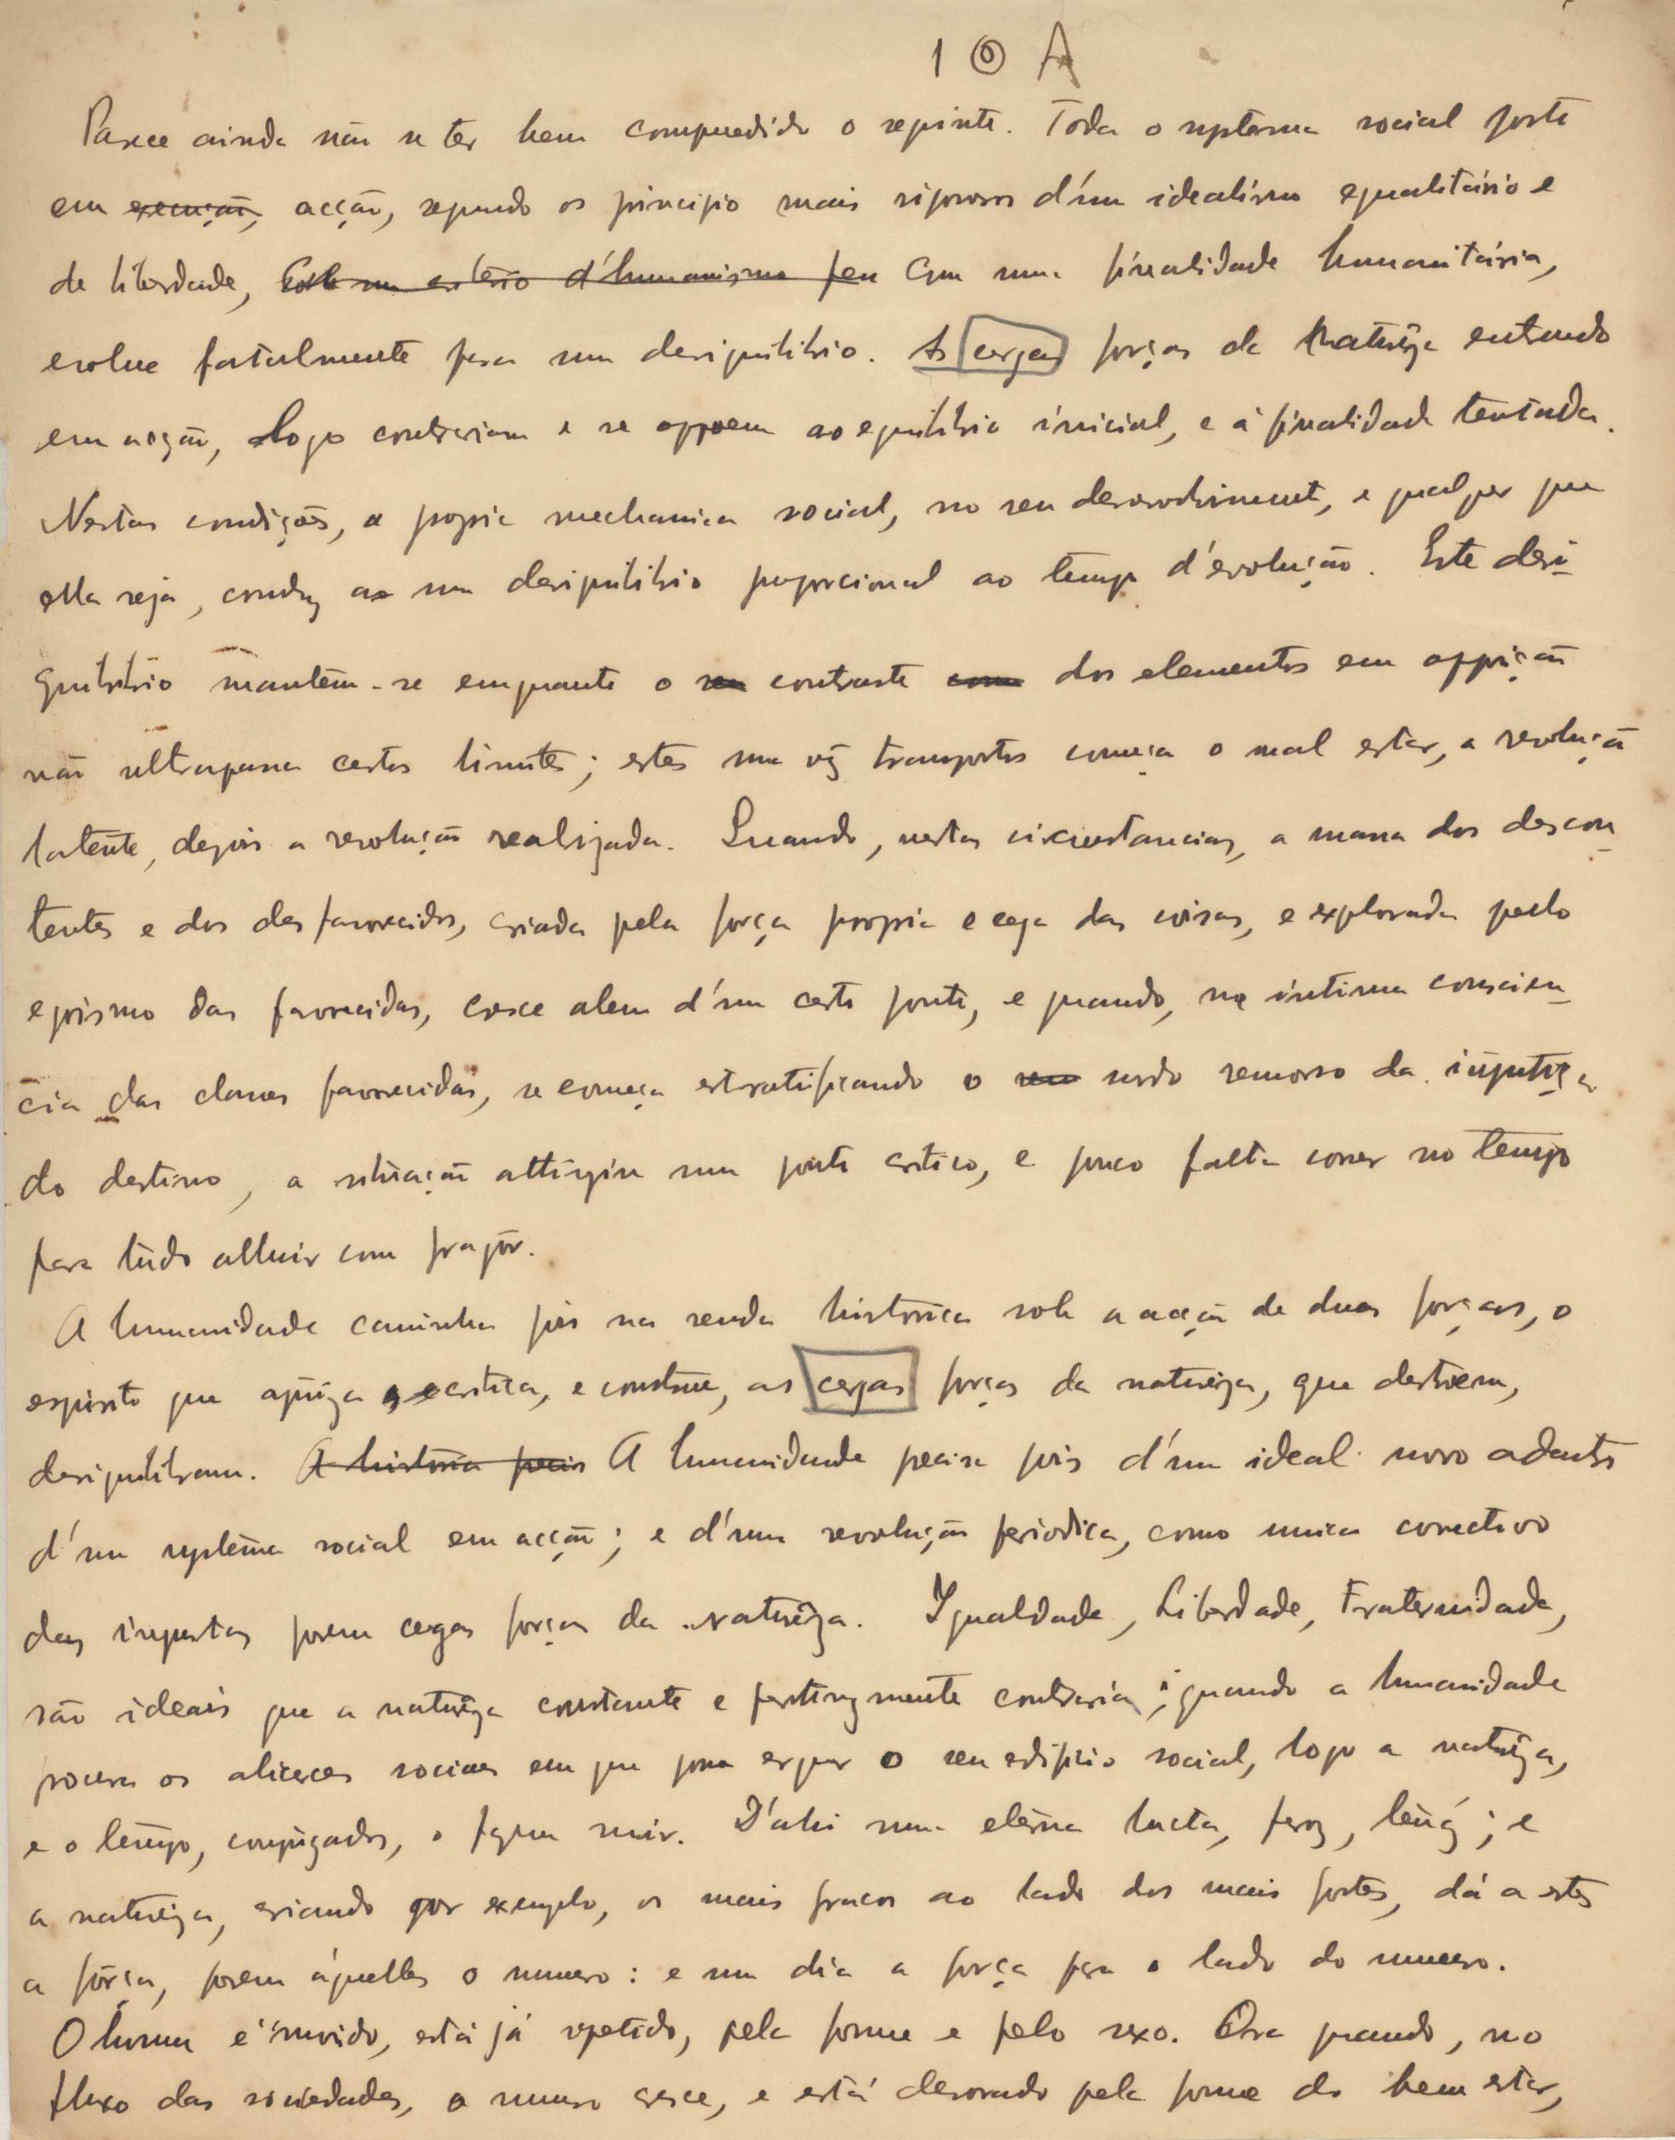 1 0 A
Parece ainda não se ter bem comprendido o seguinte. Todo o systema social posto
em execução, acção, segundo os principio mais rigorosos d'um idealismo egualitário e
de liberdade, d'humanismo com uma finalidade humanitária,
evolue fatalmente para um desiquilibrio. As cegas forças da Natureza entrando
em acção, logo contrariam e se oppoem ao equilibrio inicial, e á finalidade tentada.
Nestas condições, a propria mechanica social, no seu desenvolvimento, e qualquer que
ella seja, conduz a um desiquilibrio proporcional ao tempo d'evolução. Este desi-
quilibrio mantem-se emquanto o seu contraste com dos elementos em opposição
não ultrapassa certos limites; estes uma vez transpostos começa o mal estar, a revolução
latente, depois a revolução realizada. Quando, nestas circunstancias, a massa dos descon-
tentes e dos desfavorecidos, criada pela força propria e cega das coisas, e explorada pelo
egoismo dos favorecidos, cresce alem d'um certo ponto, e quando, na intima conscien-
cia das classes favorecidas, se começa estratificando o seu surdo remorso da injustiça
do destino, a situação attingiu um ponto critico, e pouco falta correr no tempo
para tudo alluir com fragor.
A humanidade caminha pois na senda historica sob a acção de duas forças, o
espirito que ajuiza, critica, e constroe, as cegas forças da natureza, que destroem,
desiquilibram. A historia pois A humanidade precisa pois d'um ideal novo adentro
d'um systema social em acção; e d'uma revolução periodica, como unico correctivo
das injustas porem cegas forças da natureza. Igualdade, Liberdade, Fraternidade,
são ideais que a natureza constante e pertinazmente contraria; quando a humanidade
procura os alicerces sociaes em que possa erguer o seu edificio social, logo a natureza,
e o tempo, conjugados, o fazem ruir. D'ahi uma eterna lucta, feroz, tenaz; e
a natureza, criando por exemplo, os mais fracos ao lado dos mais fortes, dá a estes
a força, porem áquelles o numero: e um dia a força passa o lado do numero.
O homem é movido, está já repetido, pela fome e pelo sexo. Ora quando, no
fluxo das sociedades, o numero cresce, e está devorado pela fome do bem estar,